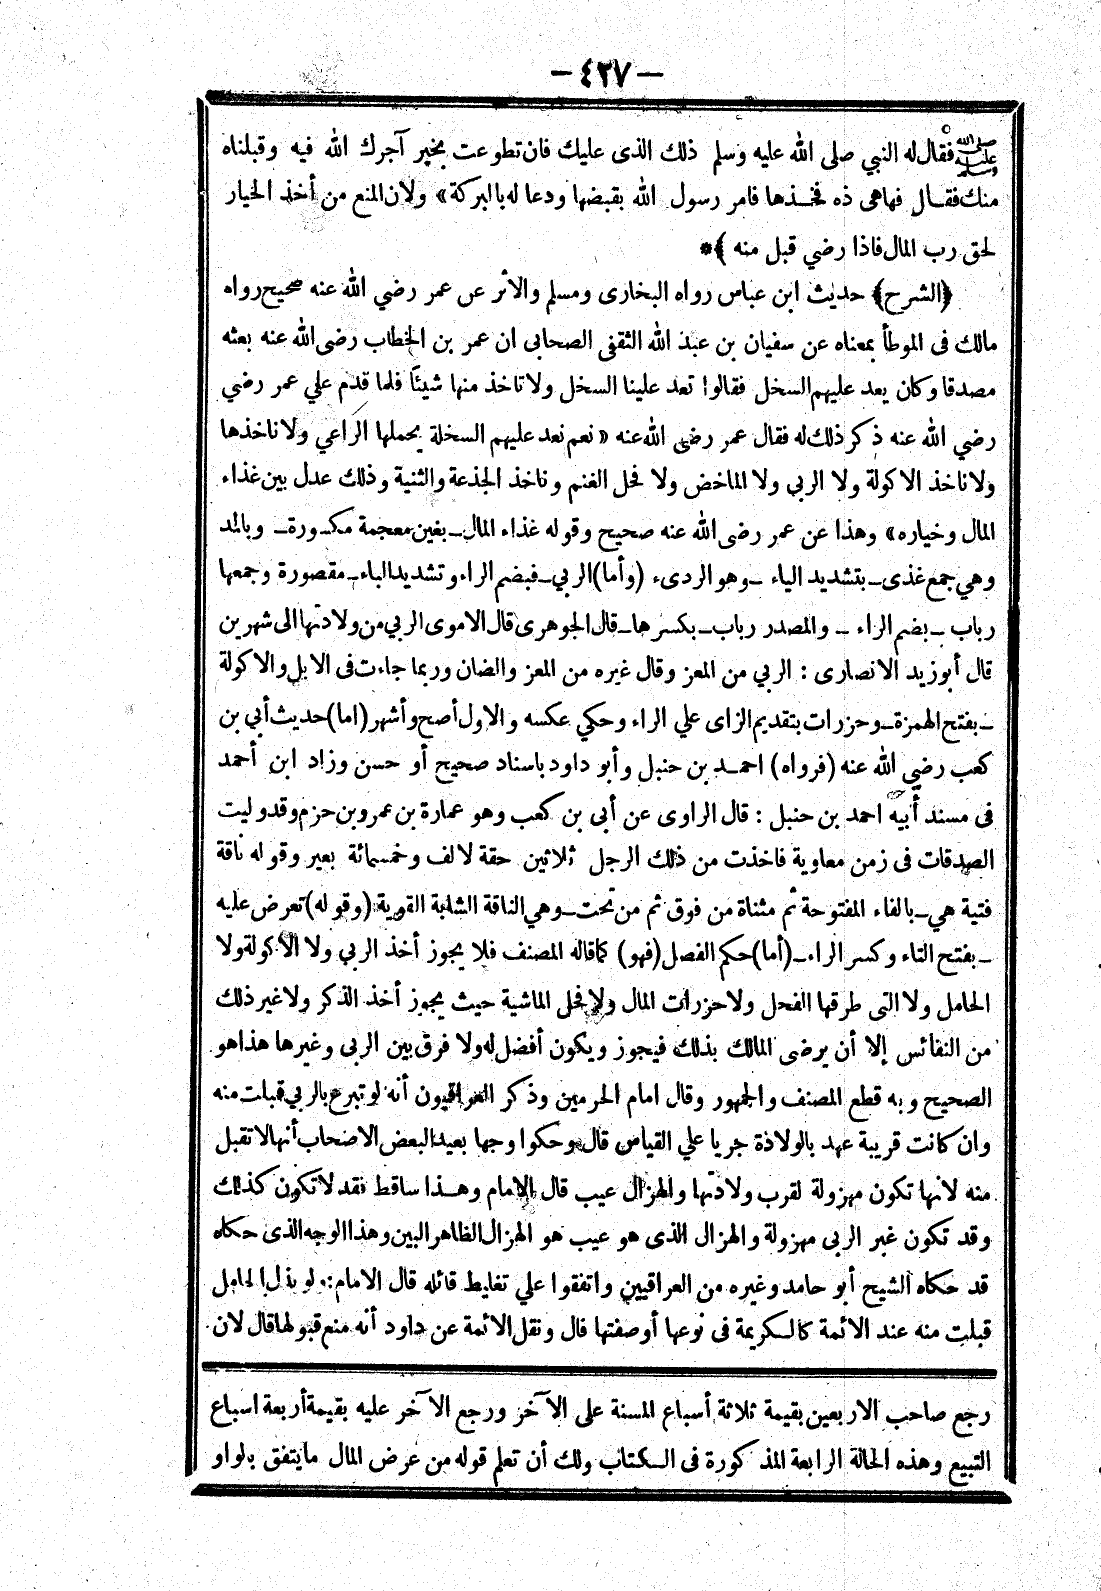 — ٤٢٧ —
ﷺ فقال له النبي صلى الله عليه وسلم ذلك الذى عليك فان تطوعت بخير آجرك الله فيه وقبلناه
منك فقال فهاهى ذه فخذها فامر رسول الله بقبضها ودعا له بالبركة» ولان المنع من أخذ الخيار
لحق رب المال فاذا رضي قبل منه ﴾*
﴿الشرح﴾ حديث ابن عباس رواه البخارى ومسلم والأثر عن عمر رضي الله عنه صحيح رواه
مالك فى الموطأ بمعناه عن سفيان بن عبد الله الثقفى الصحابى ان عمر بن الخطاب رضى الله عنه بعثه
مصدقا وكان يعد عليهم السخل فقالوا تعد علينا السخل ولا تاخذ منها شيئًا فلما قدم علي عمر رضي
رضي الله عنه ذكر ذلك له فقال عمر رضى الله عنه « نعم نعد عليهم السخلة يحملها الراعي ولا ناخذها
ولا ناخذ الاكولة ولا الربي ولا الماخض ولا فحل الغنم وناخذ الجذعة والثنية وذلك عدل بين غذاء
المال وخياره» وهذا عن عمر رضى الله عنه صحيح وقوله غذاء المال ـ بغين معجمة مكسورة ـ وبالمد
وهي جمع غذى ـ بتشديد الياء ـ وهو الردىء (وأما) الربي ـ فبضم الراء وتشديد الباء ـ مقصورة وجمعها
رباب ـ بضم الراء ـ والمصدر رباب ـ بكسرها ـ قال الجوهرى قال الاموى الربي من ولادتها الى شهرين
قال أبو زيد الانصارى : الربي من المعز وقال غيره من المعز والضان وربما جاءت فى الابل والاكولة
ـ بفتح الهمزة ـ وحزرات بتقديم الزاى علي الراء وحكي عكسه والاول أصح وأشهر (اما) حديث أبي بن
كعب رضي الله عنه (فرواه) احمد بن حنبل وأبو داود باسناد صحيح أو حسن وزاد ابن أحمد
فى مسند أبيه احمد بن حنبل : قال الراوى عن أبى بن كعب وهو عمارة بن عمرو بن حزم وقد وليت
الصدقات فى زمن معاوية فاخذت من ذلك الرجل ثلاثين حقة لالف وخمسمائة بعير وقوله ناقة
فتية هي ـ بالفاء المفتوحة ثم مثناة من فوق ثم من تحت ـ وهي الناقة الشابة القوية (وقوله) تعرض عليه
ـ بفتح التاء وكسر الراء ـ (أما) حكم الفصل (فهو) كما قاله المصنف فلا يجوز أخذ الربي ولا الأكولة ولا
الحامل ولا التى طرقها الفحل ولا حزرات المال ولا فحل الماشية حيث يجوز أخذ الذكر ولا غير ذلك
من النفائس إلا أن يرضى المالك بذلك فيجوز ويكون أفضل له ولا فرق بين الربى وغيرها هذا هو
الصحيح وبه قطع المصنف والجمهور وقال امام الحرمين وذكر العراقيون أنه لو تبرع بالربي قبلت منه
وان كانت قريبة عهد بالولادة جريا علي القياس قال وحكوا وجها بعيدا لبعض الاصحاب أنها لا تقبل
منه لانها تكون مهزولة لقرب ولادتها والهزال عيب قال الامام وهذا ساقط فقد لا تكون كذلك
وقد تكون غير الربى مهزولة والهزال الذى هو عيب هو الهزال الظاهر البين وهذا الوجه الذى حكاه
قد حكاه الشيخ أبو حامد وغيره من العراقيين واتفقوا علي تغليط قائله قال الامام: ولو بذل الحامل
قبلت منه عند الائمة كالكريمة فى نوعها أو صفتها قال ونقل الائمة عن داود أنه منع قبولها قال لان
رجع صاحب الاربعين بقيمة ثلاثة أسباع المسنة على الآخر ورجع الآخر عليه بقيمة أربعة اسباع
التبيع وهذه الحالة الرابعة المذكورة فى الكتاب ولك أن تعلم قوله من عرض المال ما يتفق بالواو